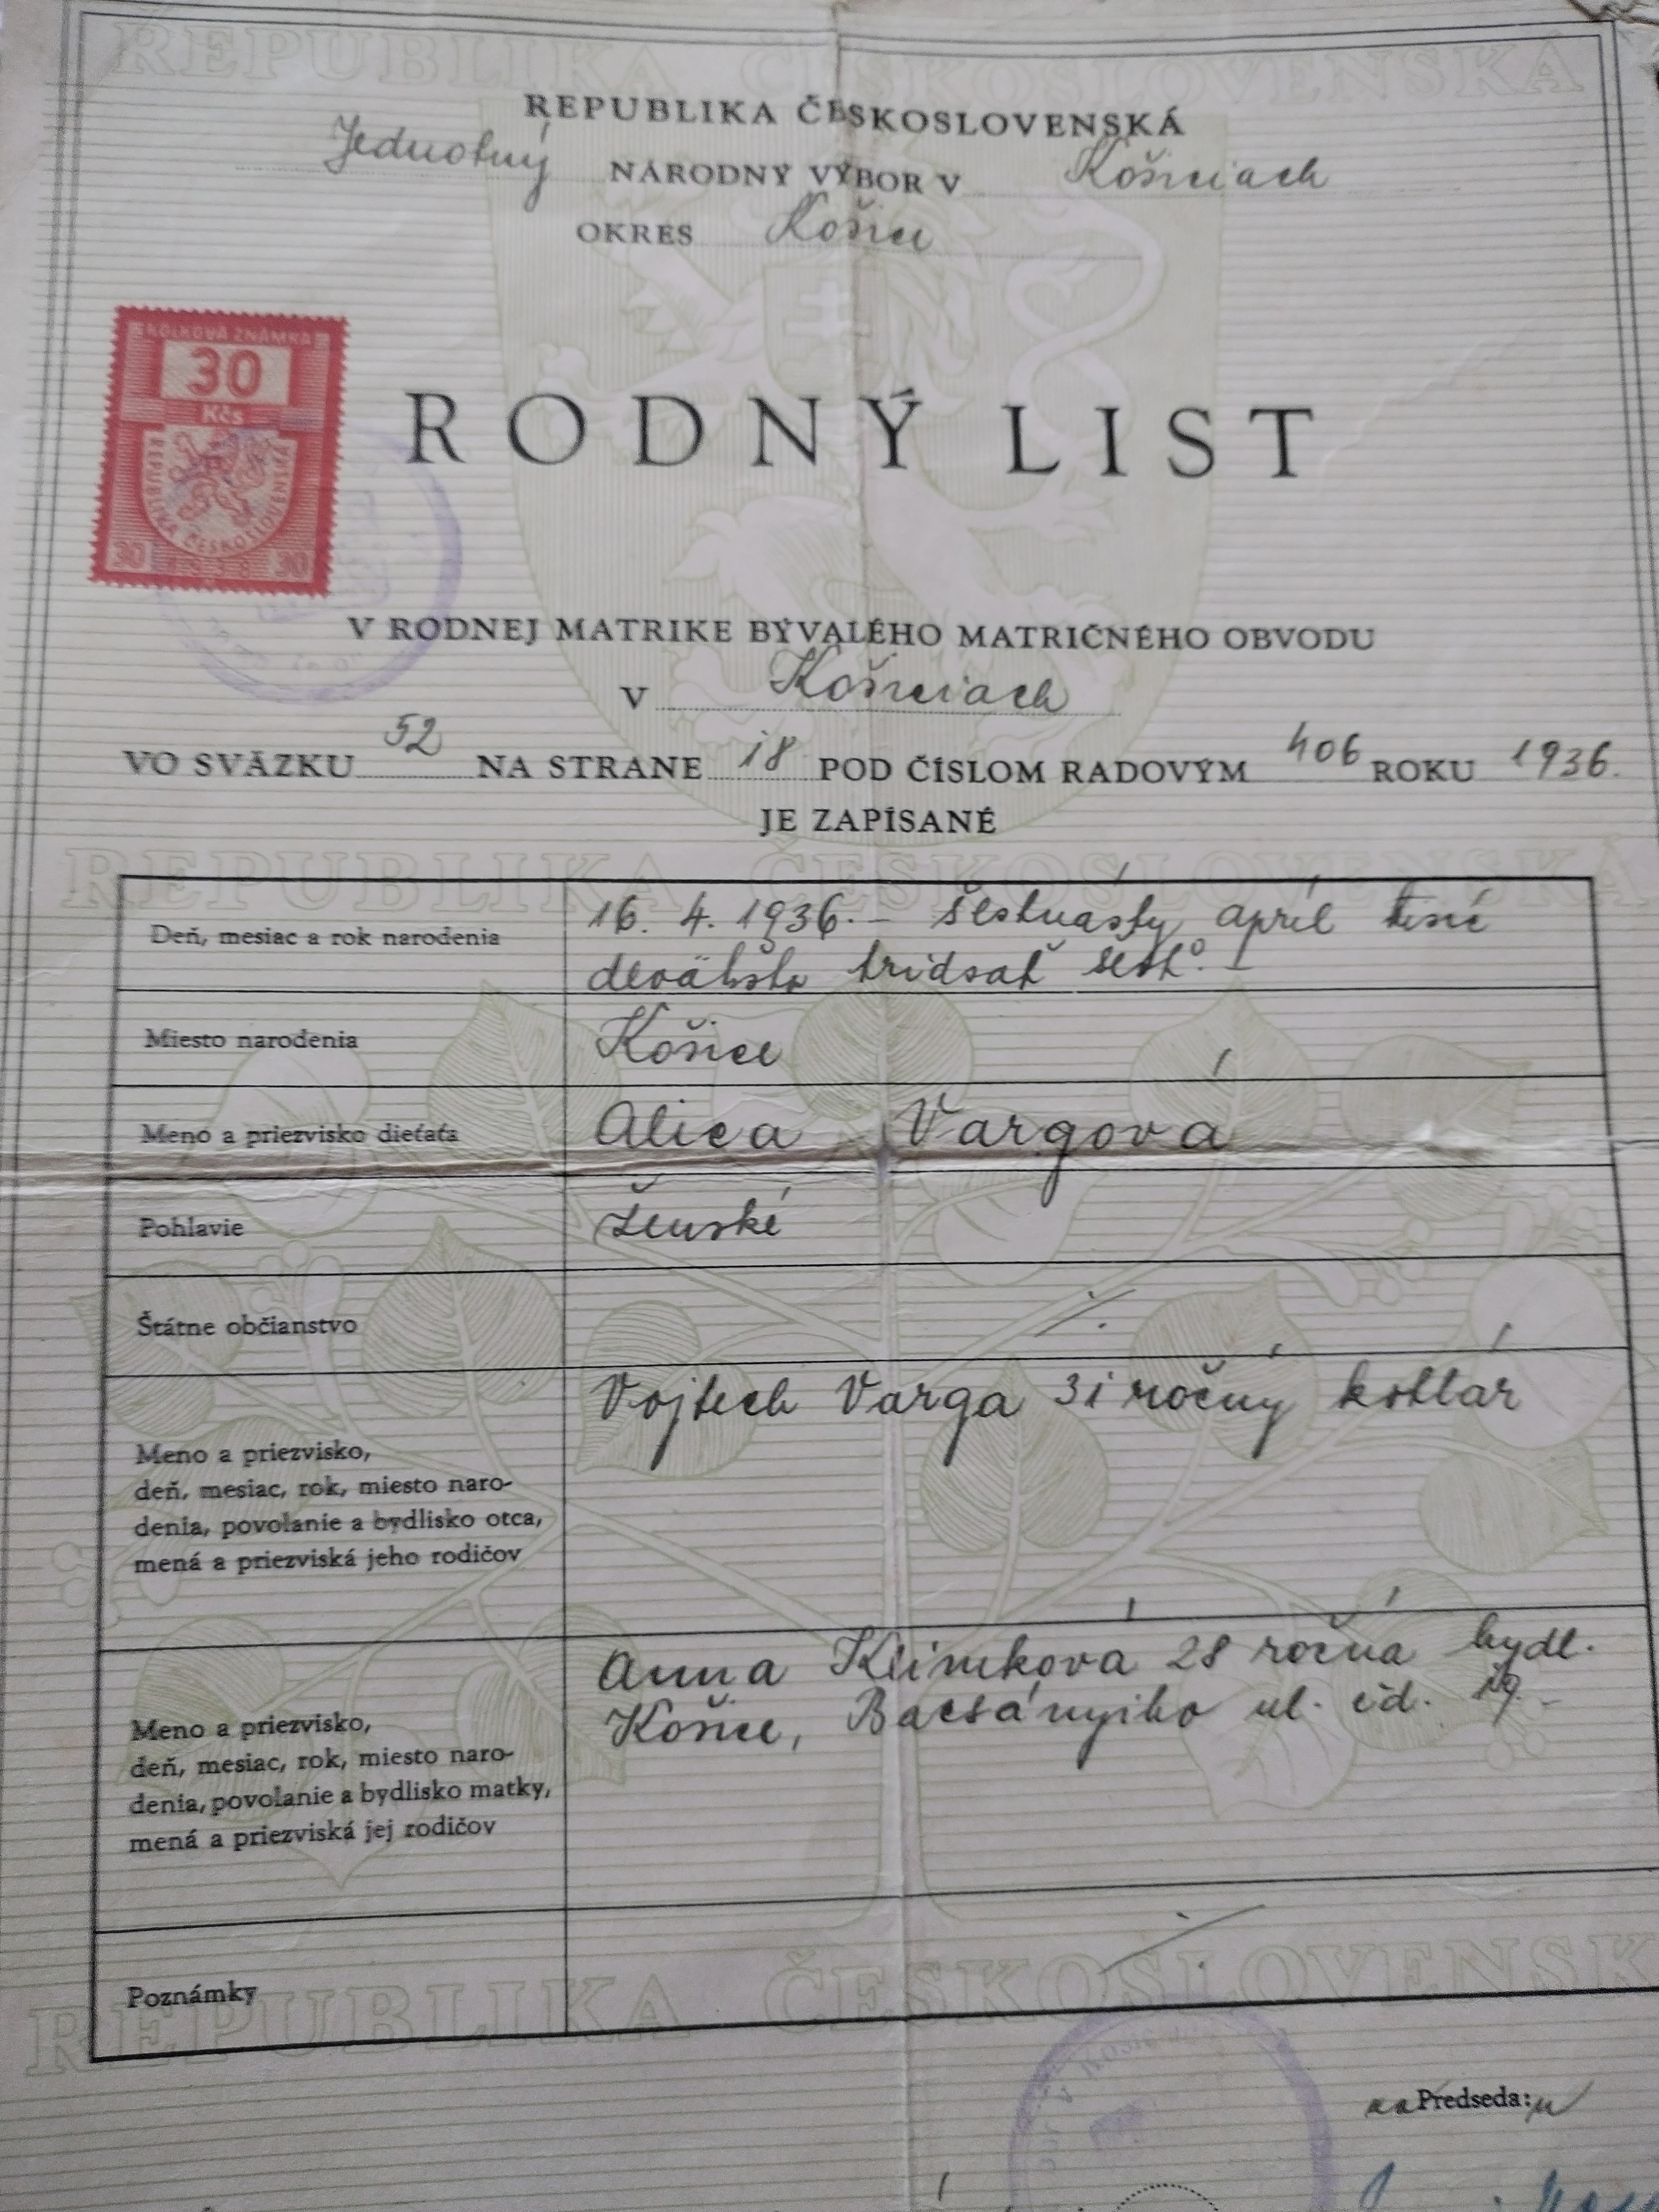 REPUBLIKA ČESKOSLOVENSKÁ
REPUBLIKA ČESKOSLOVENSKÁ
Jednotný NÁRODNÝ VÝBOR V Košiciach
OKRES Košice
KOLKOVÁ ZNÁMKA
30
Kčs
REPUBLIKA ČESKOSLOVENSKÁ
30 1938 30
RODNÝ LIST
V RODNEJ MATRIKE BÝVALÉHO MATRIČNÉHO OBVODU
V Košiciach
VO SVÄZKU 52 NA STRANE 18 POD ČÍSLOM RADOVÝM 406 ROKU 1936.
JE ZAPÍSANÉ
REPUBLIKA ČESKOSLOVENSKÁ
Deň, mesiac a rok narodenia
16. 4. 1936. – šestnásty apríl tisíc
deväťsto tridsať šesť. –
Miesto narodenia
Košice
Meno a priezvisko dieťaťa
Alica Vargová
Pohlavie
ženské
Štátne občianstvo
Meno a priezvisko,
deň, mesiac, rok, miesto naro-
denia, povolanie a bydlisko otca,
mená a priezviská jeho rodičov
Vojtech Varga 31 ročný kotlár
Meno a priezvisko,
deň, mesiac, rok, miesto naro-
denia, povolanie a bydlisko matky,
mená a priezviská jej rodičov
Anna Klimková 28 ročná bydl.
Košice, Bacsányiho ul. čd. 19. –
Poznámky
REPUBLIKA ČESKOSLOVENSK
Predseda: